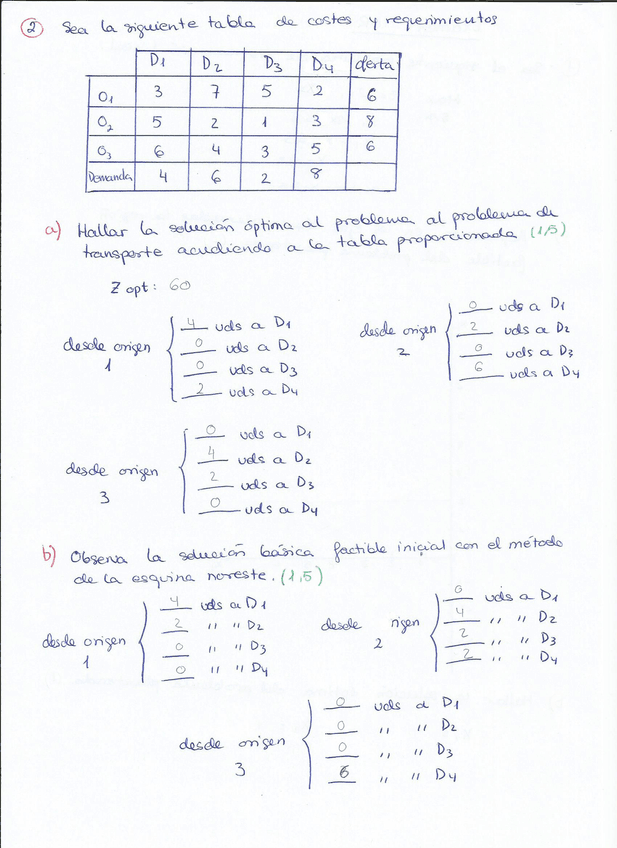 2 Sea la siguiente tabla de costes y requerimientos
D1 D2 D3 D4 oferta
O1 3 7 5 2 6
O2 5 2 1 3 8
O3 6 4 3 5 6
Demanda 4 6 2 8
a) Hallar la solución óptima al problema al problema de
transporte acudiendo a la tabla proporcionada (1,5)
Z opt: 60
desde origen 1
4 uds a D1
0 uds a D2
0 uds a D3
2 uds a D4
desde origen 2
0 uds a D1
2 uds a D2
0 uds a D3
6 uds a D4
desde origen 3
0 uds a D1
4 uds a D2
2 uds a D3
0 uds a D4
b) Observa la solución básica factible inicial con el método
de la esquina noreste. (1,5)
desde origen 1
4 uds a D1
2 " " D2
0 " " D3
0 " " D4
desde rigen 2
0 uds a D1
4 " " D2
2 " " D3
2 " " D4
desde origen 3
0 uds a D1
0 " " D2
0 " " D3
6 " " D4